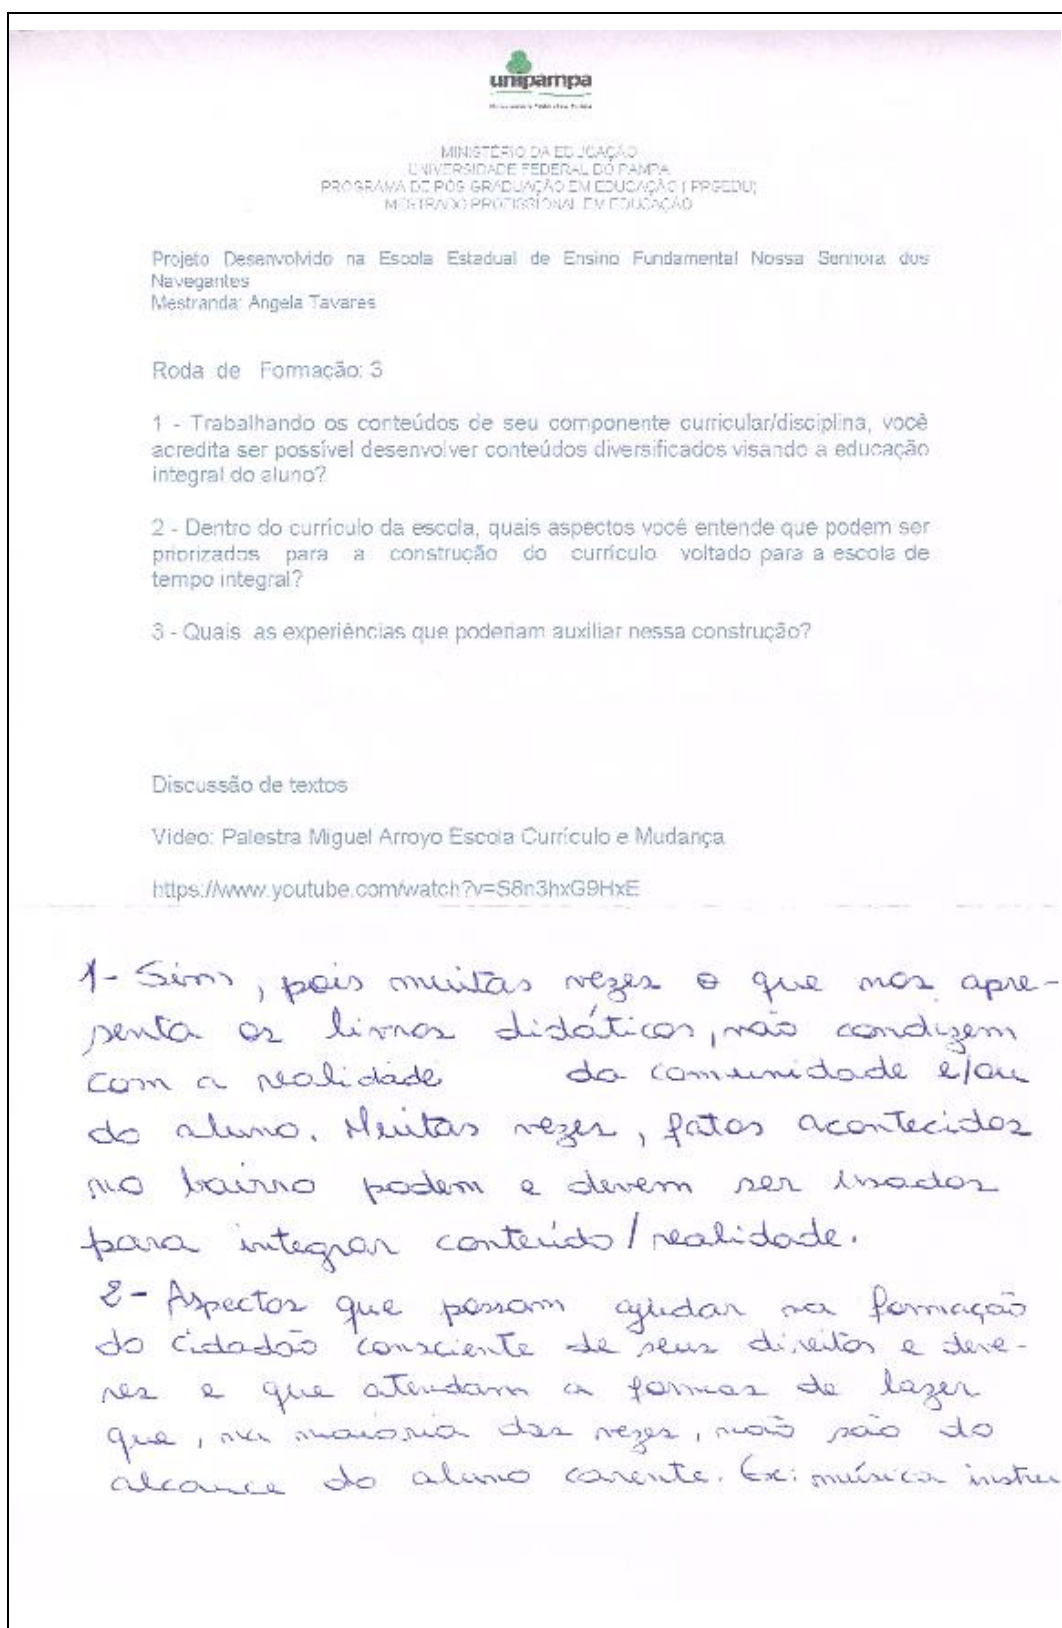 unipampa
MINISTÉRIO DA EDUCAÇÃO
UNIVERSIDADE FEDERAL DO PAMPA
PROGRAMA DE PÓS-GRADUAÇÃO EM EDUCAÇÃO ( PPGEDU)
MESTRADO PROFISSIONAL EM EDUCAÇÃO
Projeto Desenvolvido na Escola Estadual de Ensino Fundamental Nossa Senhora dos
Navegantes
Mestranda: Angela Tavares
Roda de Formação: 3
1 - Trabalhando os conteúdos de seu componente curricular/disciplina, você
acredita ser possível desenvolver conteúdos diversificados visando a educação
integral do aluno?
2 - Dentro do currículo da escola, quais aspectos você entende que podem ser
priorizados para a construção do currículo voltado para a escola de
tempo integral?
3 - Quais as experiências que poderiam auxiliar nessa construção?
Discussão de textos
Vídeo: Palestra Miguel Arroyo Escola Currículo e Mudança
https://www.youtube.com/watch?v=S8n3hxG9HxE
1- Sim, pois muitas vezes o que nos apre-
senta os livros didáticos, não condizem
com a realidade da comunidade e/ou
do aluno. Muitas vezes, fatos acontecidos
no bairro podem e devem ser usados
para integrar conteúdo/realidade.
2- Aspectos que possam ajudar na formação
do cidadão consciente de seus direitos e deve-
res e que atendam a formas de lazer
que, na maioria das vezes, não são do
alcance do aluno carente. Ex: música instru